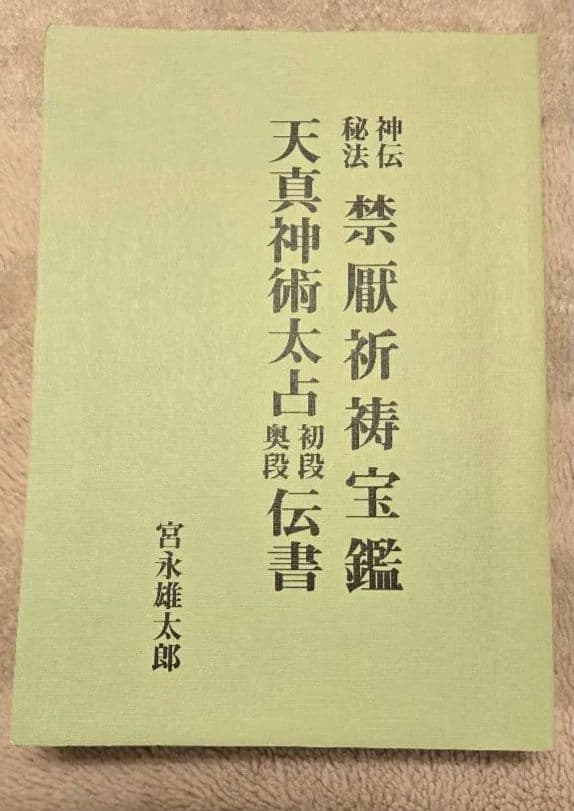 神伝秘法 禁厭祈祷宝鑑
天真神術太占初段奥段伝書
宮永雄太郎